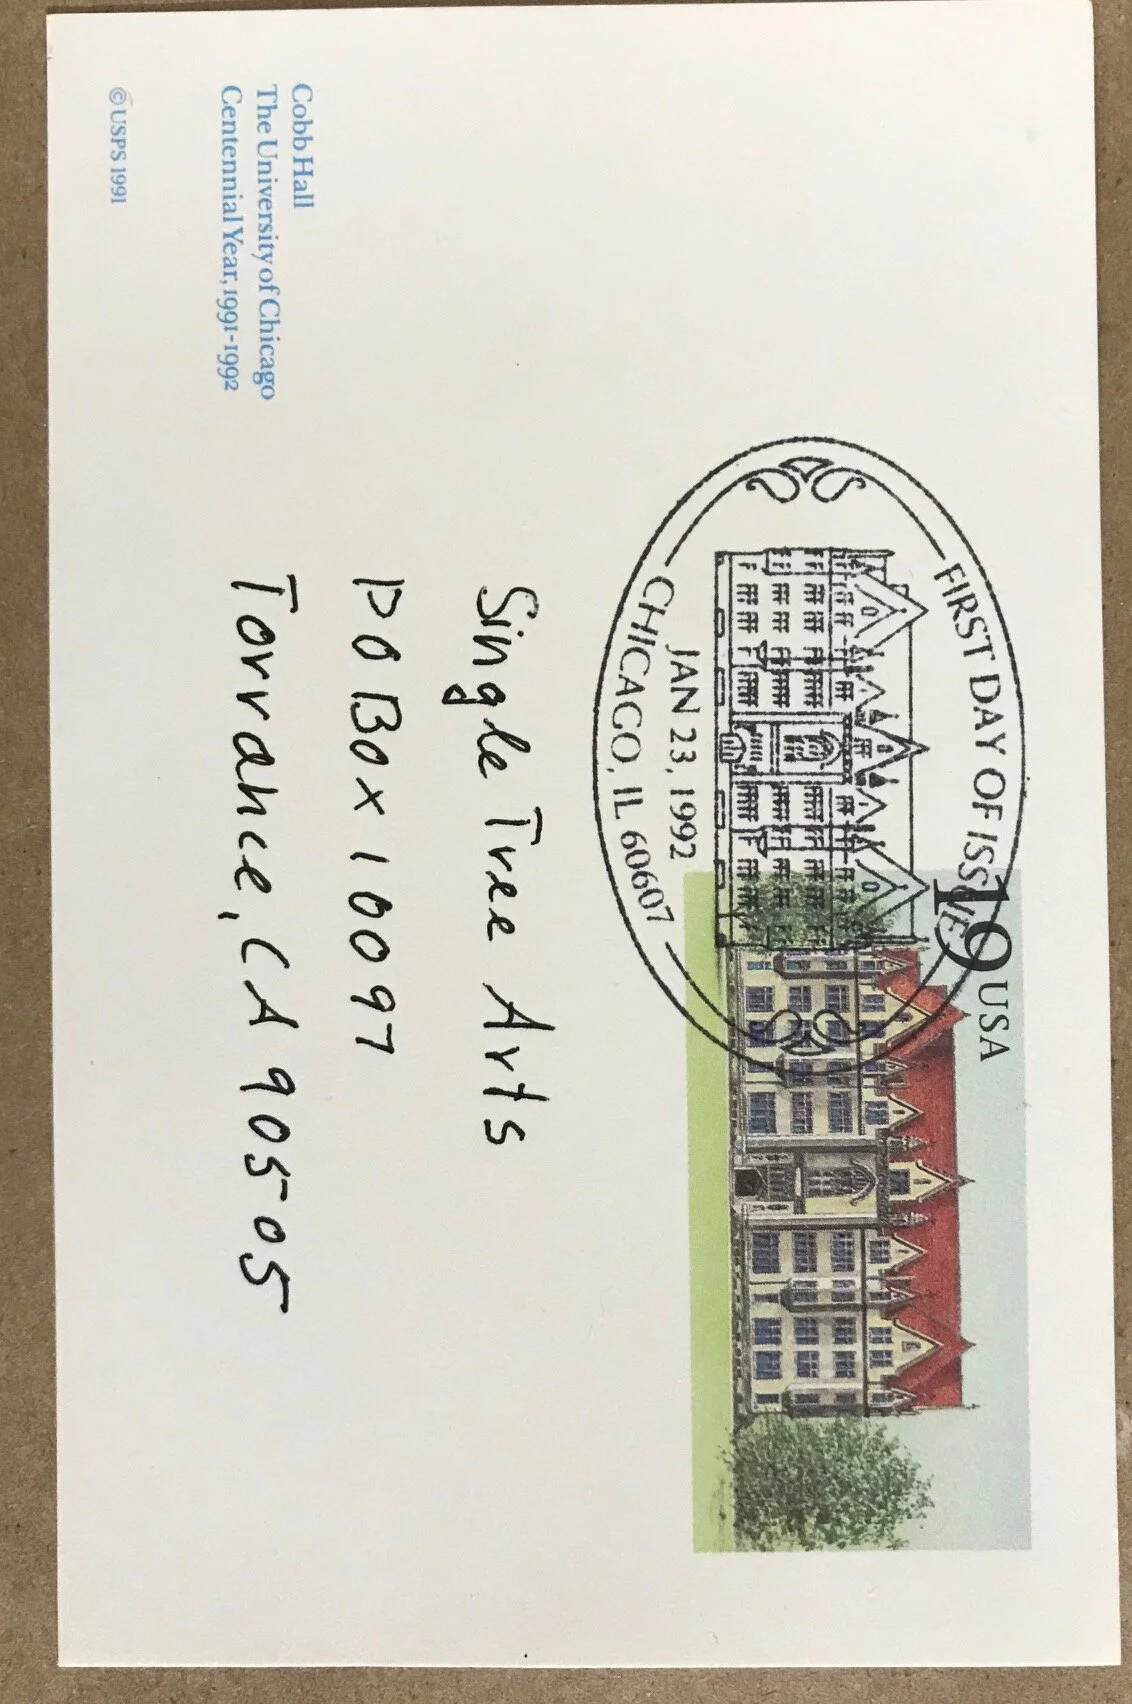 19 USA
FIRST DAY OF ISSUE
JAN 23, 1992
CHICAGO, IL 60607
Single Tree Arts
PO Box 10097
Torrance, CA 90505
Cobb Hall
The University of Chicago
Centennial Year, 1991-1992
© USPS 1991